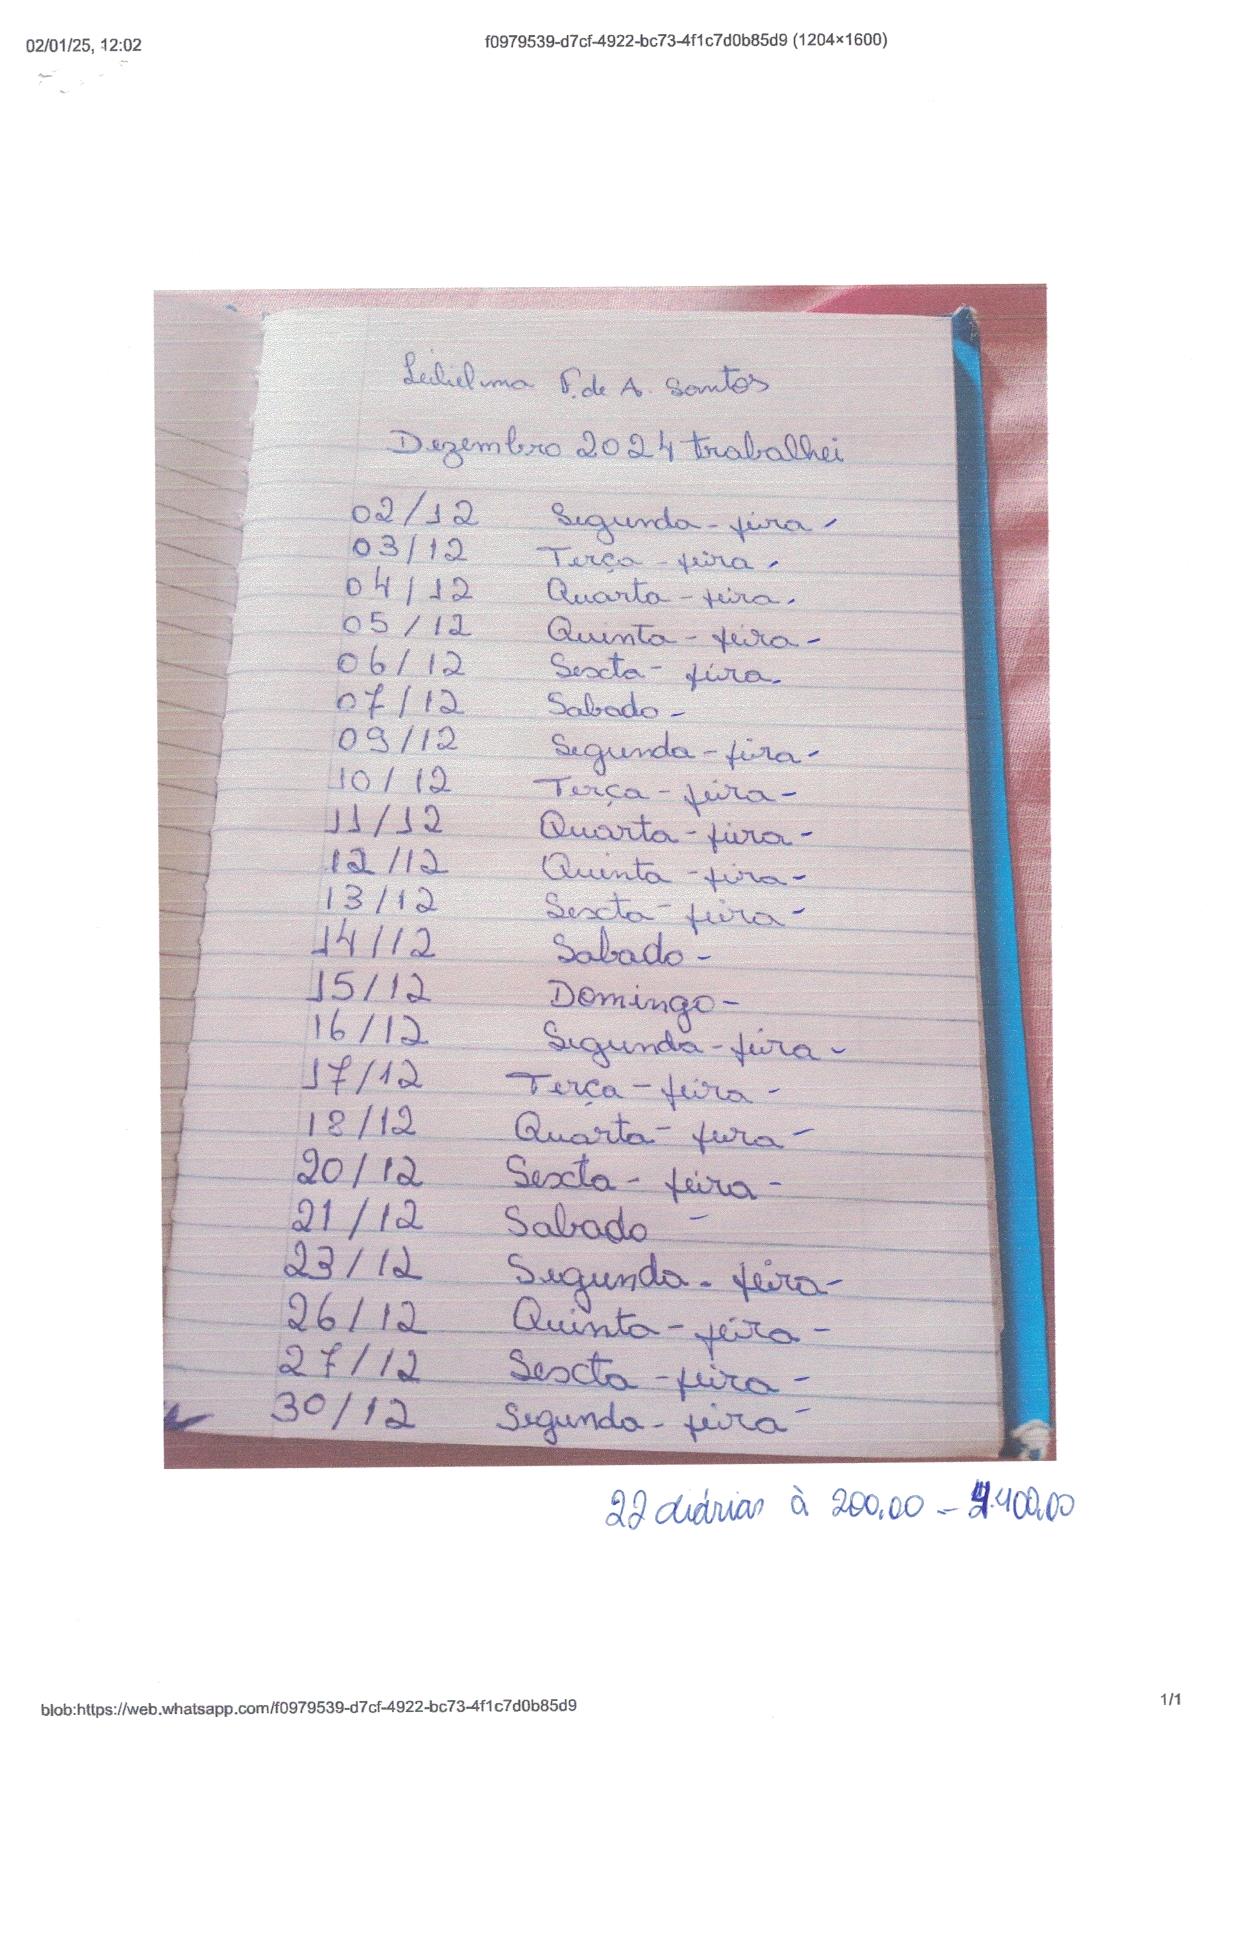 02/01/25, 12:02
f0979539-d7cf-4922-bc73-4f1c7d0b85d9 (1204×1600)
Leilielma F. de A. Santos
Dezembro 2024 trabalhei
02/12 Segunda-feira -
03/12 Terça-feira -
04/12 Quarta-feira -
05/12 Quinta-feira -
06/12 Sexta-feira -
07/12 Sabado -
09/12 Segunda-feira -
10/12 Terça-feira -
11/12 Quarta-feira -
12/12 Quinta-feira -
13/12 Sexta-feira -
14/12 Sabado -
15/12 Domingo -
16/12 Segunda-feira -
17/12 Terça-feira -
18/12 Quarta-feira -
20/12 Sexta-feira -
21/12 Sabado -
23/12 Segunda-feira -
26/12 Quinta-feira -
27/12 Sexta-feira -
30/12 Segunda-feira -
22 diárias à 200,00 - 4.400,00
blob:https://web.whatsapp.com/f0979539-d7cf-4922-bc73-4f1c7d0b85d9
1/1